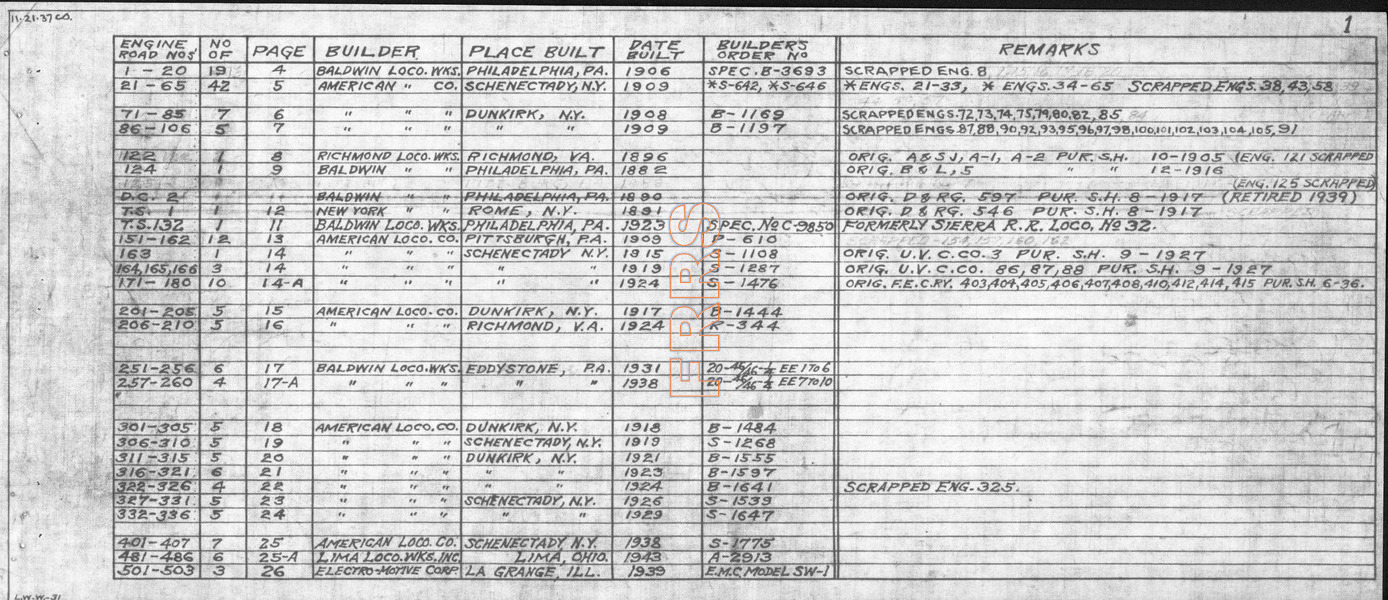 11-21-37 CO.
1
ENGINE ROAD NOS NO OF PAGE BUILDER PLACE BUILT DATE BUILT BUILDERS ORDER NO REMARKS
1 - 20 19 4 BALDWIN LOCO. WKS. PHILADELPHIA, PA. 1906 SPEC. B-3693 SCRAPPED ENG. 8
21 - 65 42 5 AMERICAN " CO. SCHENECTADY, N.Y. 1909 *S-642, *S-646 *ENGS. 21-33, * ENGS. 34-65 SCRAPPED ENGS. 38, 43, 58
71 - 85 7 6 " " " DUNKIRK, N.Y. 1908 B-1169 SCRAPPED ENGS. 72, 73, 74, 75, 79, 80, 82, 85
86-106 5 7 " " " " " 1909 B-1197 SCRAPPED ENGS. 87, 88, 90, 92, 93, 95, 96, 97, 98, 100, 101, 102, 103, 104, 105, 91
122 1 8 RICHMOND LOCO. WKS. RICHMOND, VA. 1896 ORIG. A & S J, A-1, A-2 PUR. S.H. 10-1905 (ENG. 121 SCRAPPED
124 1 9 BALDWIN " " PHILADELPHIA, PA. 1882 ORIG. B & L, 5 " " 12-1916
(ENG. 125 SCRAPPED)
D.C. 2 1 BALDWIN " " PHILADELPHIA, PA. 1890 ORIG. D & RG. 597 PUR. S.H. 8-1917 (RETIRED 1939)
T.S. 1 1 12 NEW YORK " " ROME, N.Y. 1891 ORIG. D & RG. 546 PUR. S.H. 8-1917
T.S. 132 1 11 BALDWIN LOCO. WKS. PHILADELPHIA, PA. 1923 SPEC. No C-9850 FORMERLY SIERRA R.R. LOCO, No 32.
151-162 12 13 AMERICAN LOCO. CO. PITTSBURGH, P.A. 1909 P-610
163 1 14 " " " SCHENECTADY N.Y. 1915 S-1108 ORIG. U.V.C.CO. 3 PUR. S.H. 9-1927
164,165,166 3 14 " " " " " 1919 S-1287 ORIG. U.V.C.CO. 86, 87, 88 PUR. S.H. 9-1927
171-180 10 14-A " " " " " 1924 S-1476 ORIG. F.E.C.RY. 403,404,405,406,407,408,410,412,414,415 PUR. S.H. 6-36.
201-205 5 15 AMERICAN LOCO. CO. DUNKIRK, N.Y. 1917 B-1444
206-210 5 16 " " " RICHMOND, V.A. 1924 R-344
251-256 6 17 BALDWIN LOCO. WKS. EDDYSTONE, P.A. 1931 EE 1 TO 6
257-260 4 17-A " " " " " 1938 EE 7 TO 10
301-305 5 18 AMERICAN LOCO. CO. DUNKIRK, N.Y. 1918 B-1484
306-310 5 19 " " " SCHENECTADY, N.Y. 1919 S-1268
311-315 5 20 " " " DUNKIRK, N.Y. 1921 B-1555
316-321 6 21 " " " " " 1923 B-1597
322-326 4 22 " " " " " 1924 B-1641 SCRAPPED ENG. 325.
327-331 5 23 " " " SCHENECTADY, N.Y. 1926 S-1539
332-336 5 24 " " " " " 1929 S-1647
401-407 7 25 AMERICAN LOCO. CO. SCHENECTADY N.Y. 1938 S-1775
481-486 6 25-A LIMA LOCO. WKS. INC. LIMA, OHIO. 1943 A-2913
501-503 3 26 ELECTRO-MOTIVE CORP LA GRANGE, ILL. 1939 E.M.C. MODEL SW-1
ERRS
L.W.W.-31